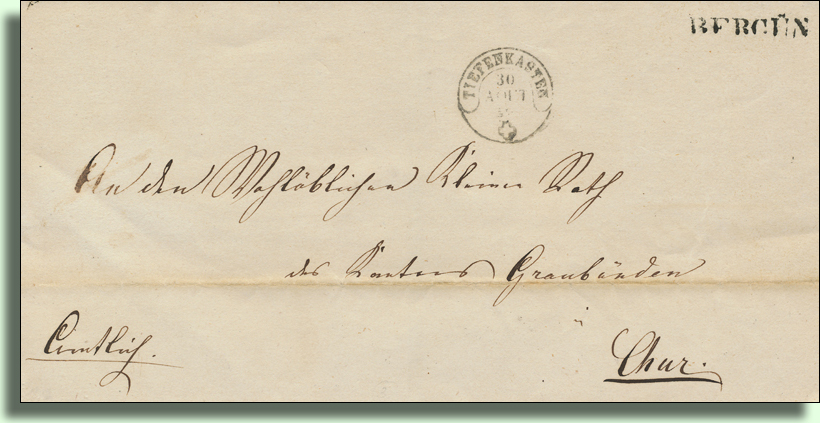 BERGÜN
TIEFENKASTEN
30
AOUT
An den Wohllöblichen Kleinen Rath
des Kantons Graubünden
Amtlich.
Chur.